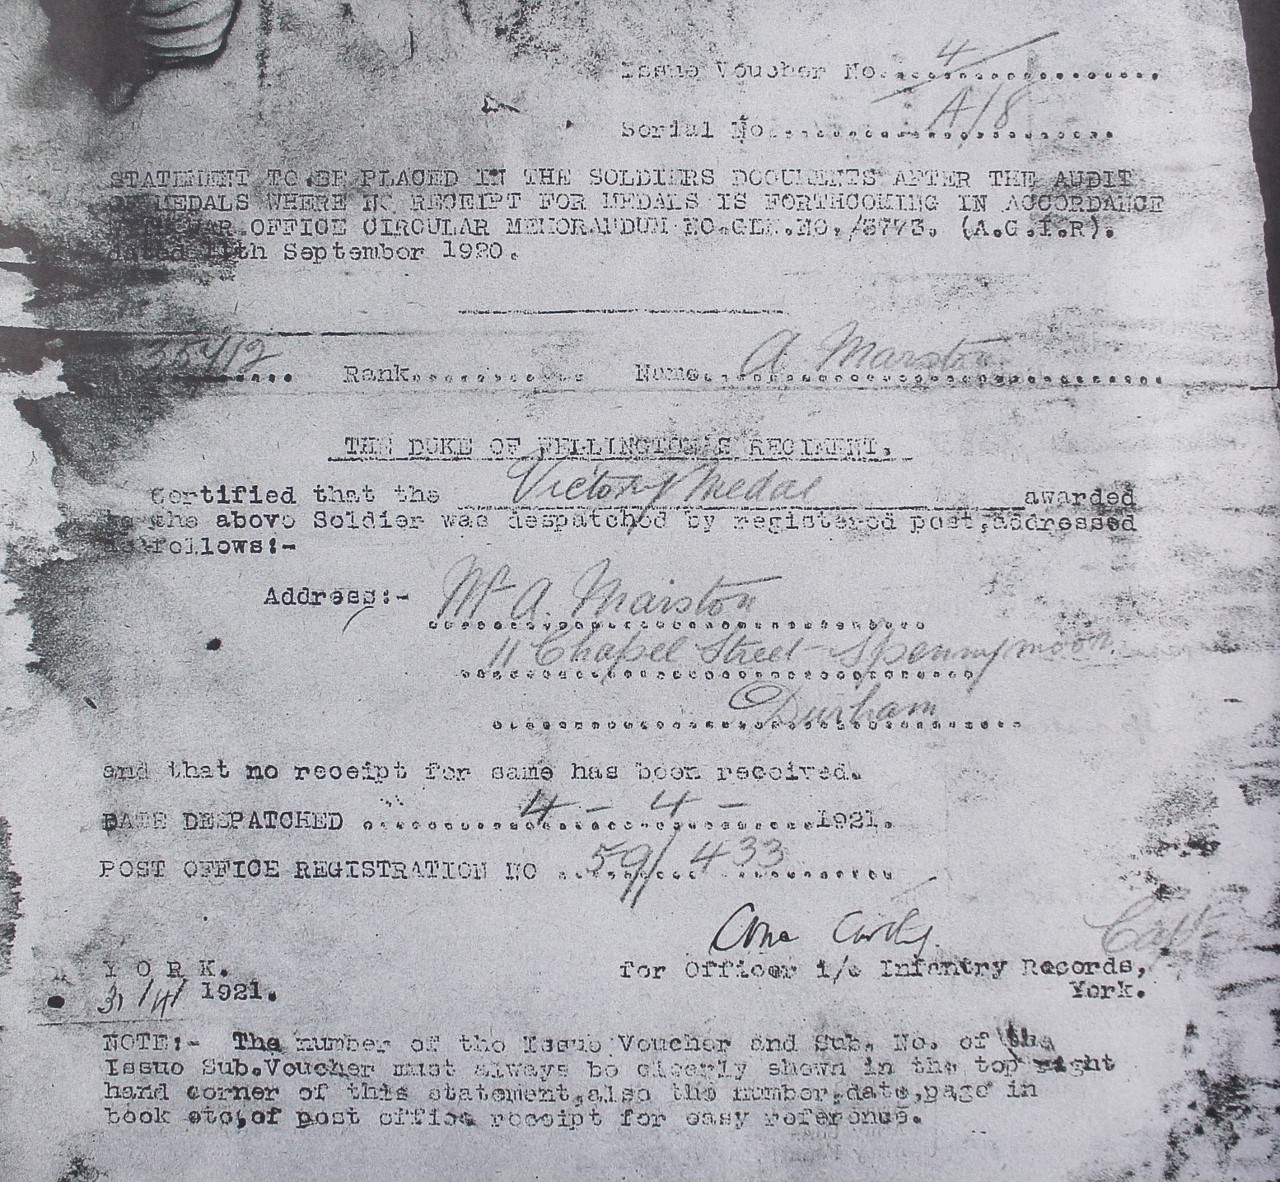 Issue Voucher No. 4
Serial No. A/8
STATEMENT TO BE PLACED IN THE SOLDIERS DOCUMENTS AFTER THE AUDIT
OF MEDALS WHERE NO RECEIPT FOR MEDALS IS FORTHCOMING IN ACCORDANCE
WAR OFFICE CIRCULAR MEMORANDUM NO.GEN.NO./5773. (A.G.I.R).
dated 11th September 1920.
35412 Rank Name A. Marston
THE DUKE OF WELLINGTON'S REGIMENT.
Certified that the Victory Medal awarded
to the above Soldier was despatched by registered post, addressed
as follows:-
Address:- Mr A. Marston
11 Chapel Street Spennymoor
Durham
and that no receipt for same has been received.
DATE DESPATCHED 4 - 4 - 1921.
POST OFFICE REGISTRATION NO 59/433
Capt
YORK. for Officer i/c Infantry Records,
1921. York.
NOTE:- The number of the Issue Voucher and Sub. No. of the
Issue Sub.Voucher must always be clearly shown in the top right
hand corner of this statement, also the number, date, page in
book etc, of post office receipt for easy reference.